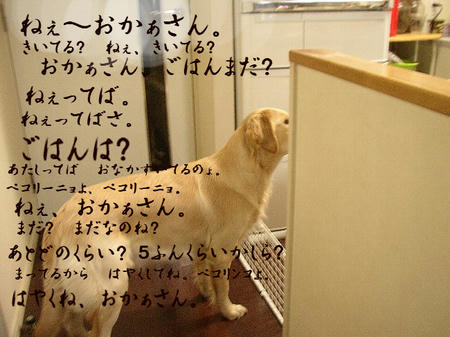 ねぇ～おかぁさん。
きいてる？　ねぇ、きいてる？
おかぁさん　ごはんまだ？
ねぇってば。
ねぇってばさ。
ごはんは？
あたしってば　おなかすいてるのょ。
ペコリーニョよ、ペコリーニョ。
ねぇ、おかぁさん。
まだ？　まだなのね？
あとどのくらい？５ふんくらいかしら？
まってるから　はやくしてね。ペコリンコよ。
はやくね、おかぁさん。